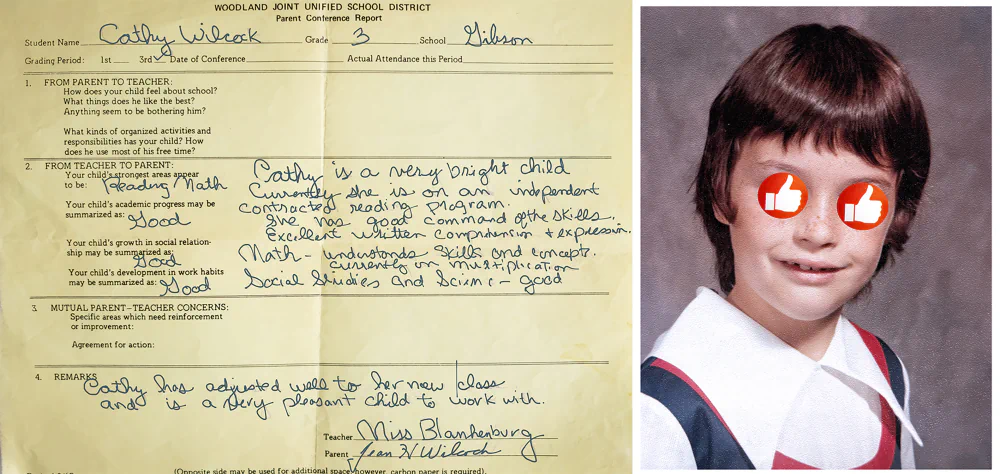 WOODLAND JOINT UNIFIED SCHOOL DISTRICT
Parent Conference Report
Student Name Cathy Wilcock Grade 3 School Gibson
Grading Period: 1st 3rd ✓ Date of Conference Actual Attendance this Period
1. FROM PARENT TO TEACHER:
How does your child feel about school?
What things does he like the best?
Anything seem to be bothering him?
What kinds of organized activities and
responsibilities has your child? How
does he use most of his free time?
2. FROM TEACHER TO PARENT:
Your child's strongest areas appear
to be: Reading Math
Your child's academic progress may be
summarized as: Good
Your child's growth in social relation-
ship may be summarized as: Good
Your child's development in work habits
may be summarized as: Good
Cathy is a very bright child
Currently she is on an independent
contracted reading program.
She has good command of the skills.
Excellent written comprehension + expression.
Math - understands skills and concepts.
currently on multiplication
Social Studies and Science - good
3. MUTUAL PARENT-TEACHER CONCERNS:
Specific areas which need reinforcement
or improvement:
Agreement for action:
4. REMARKS
Cathy has adjusted well to her new class
and is a very pleasant child to work with.
Teacher Miss Blankenburg
Parent Jean H Wilcock
(Opposite side may be used for additional space, however, carbon paper is required).